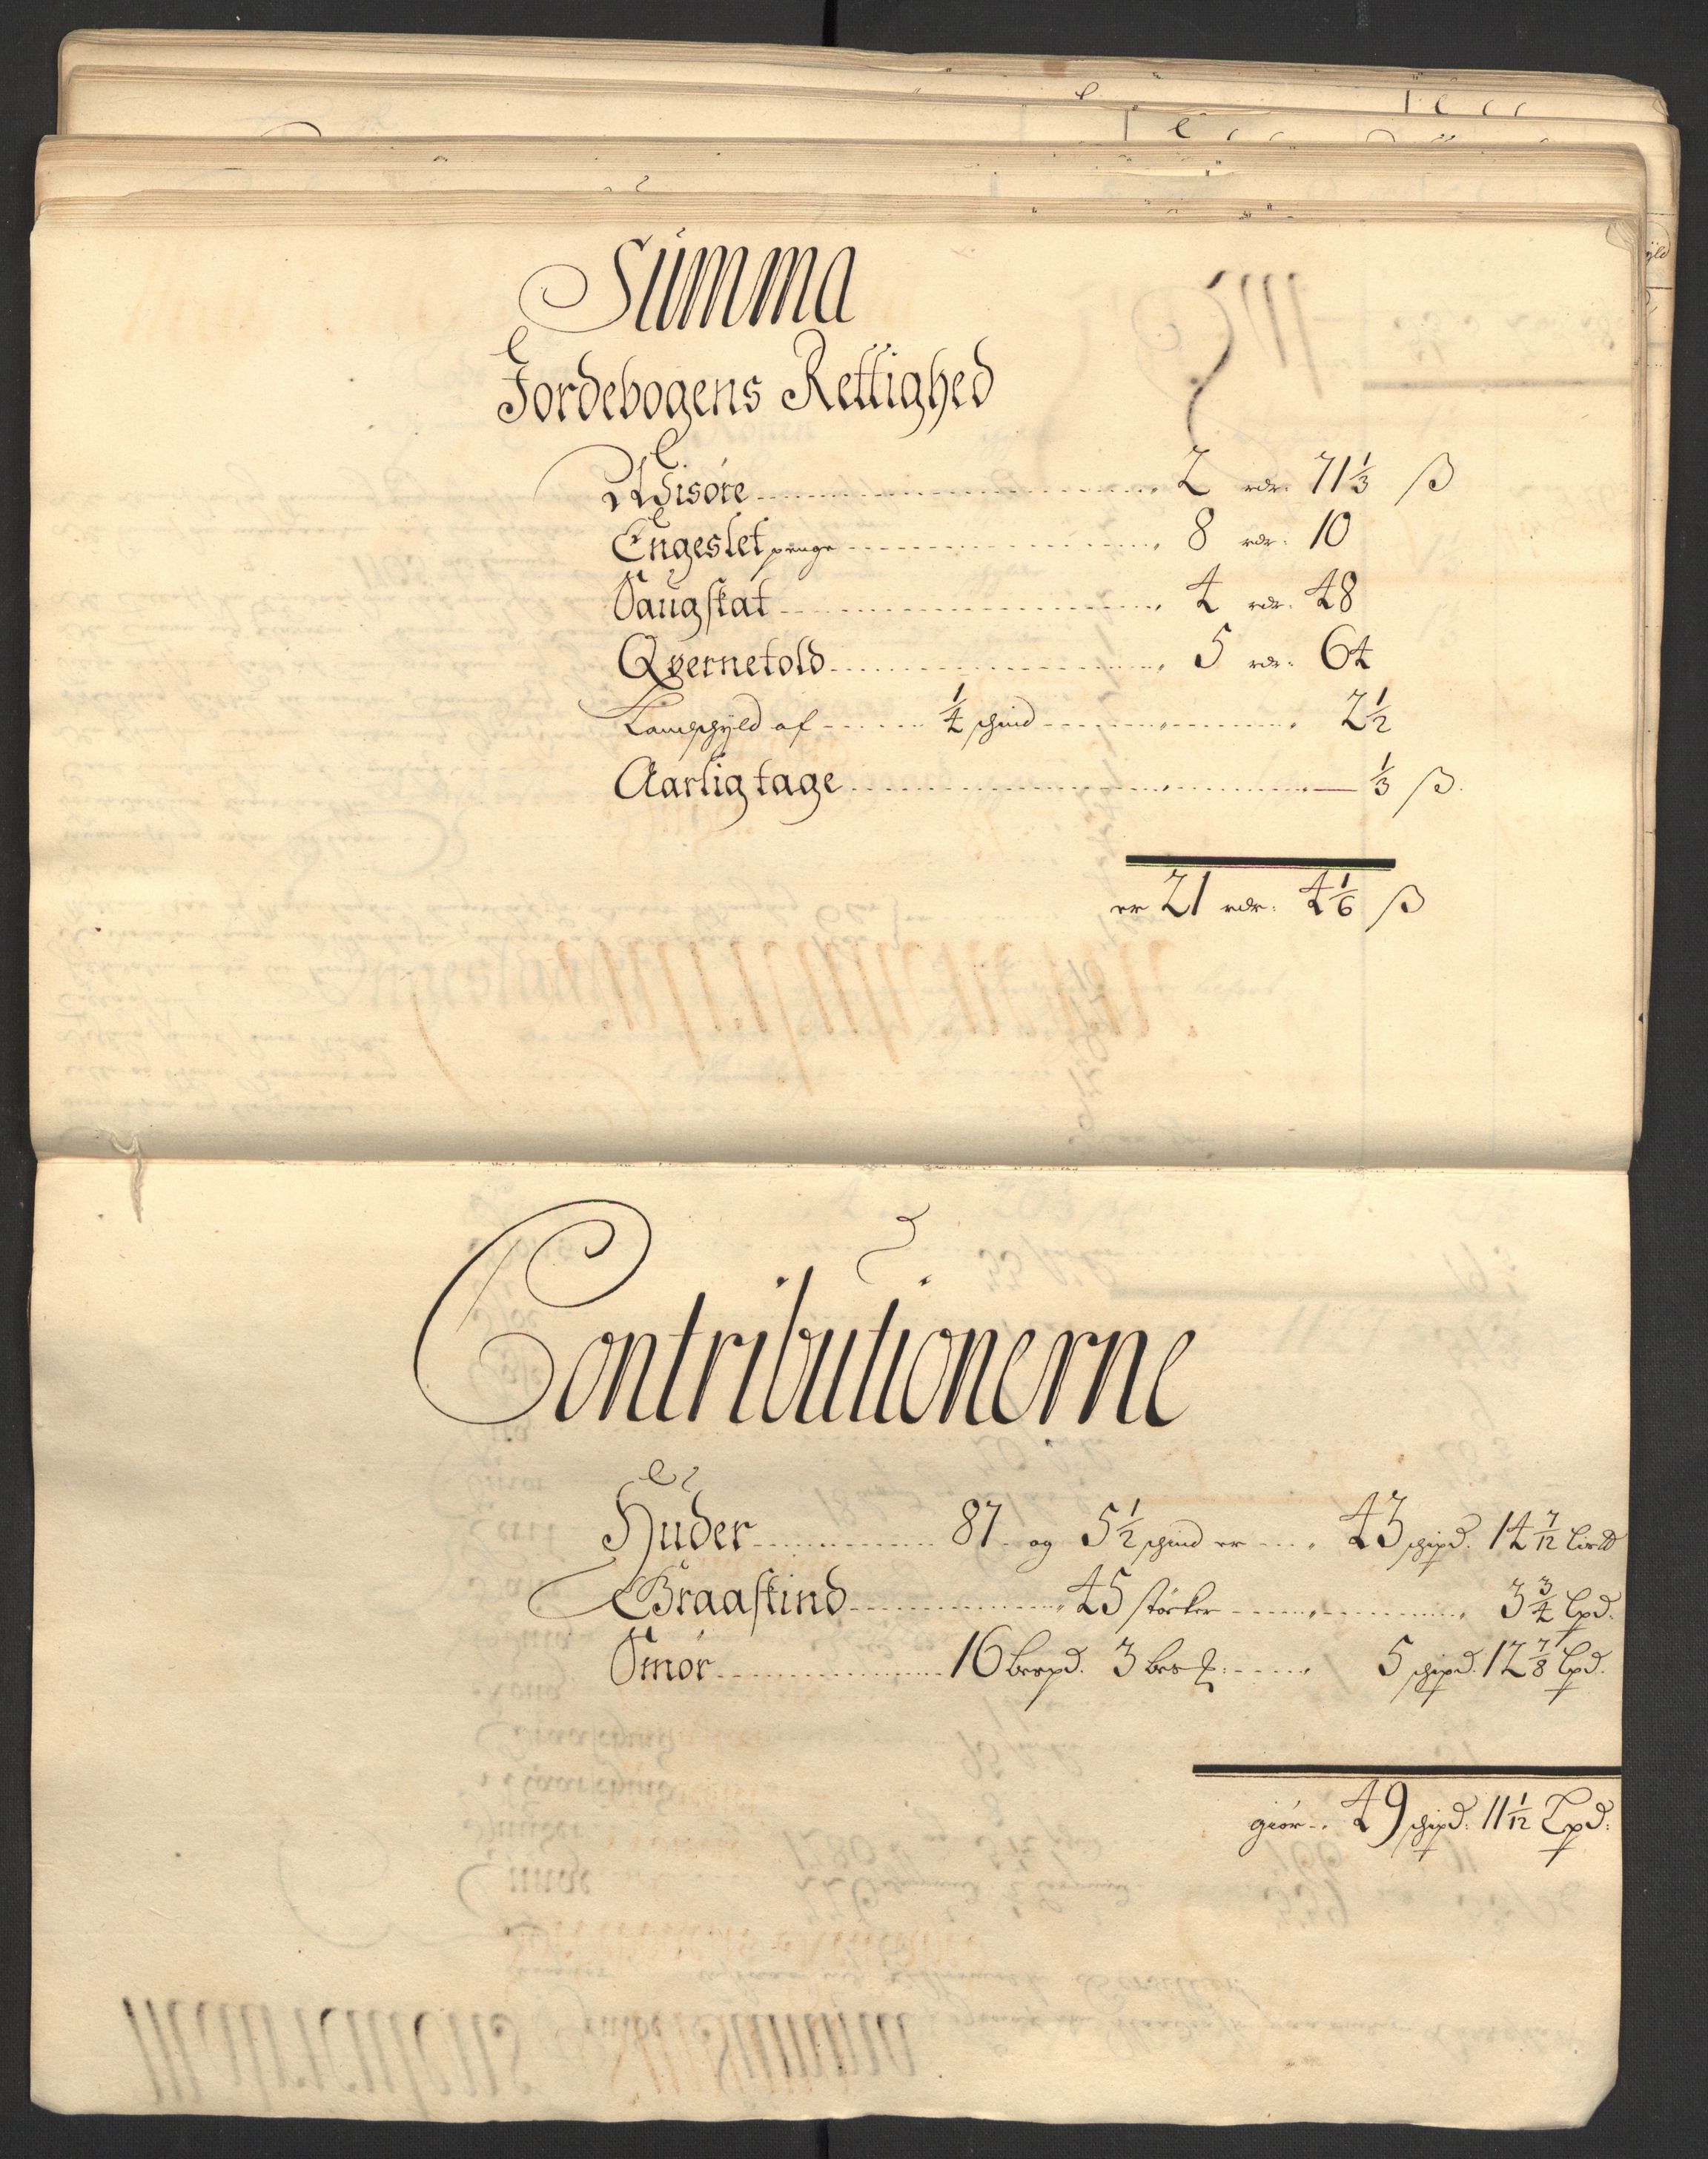 Summa
Jordebogens Rettighed
Wisøre 2 rdr. 71 1/3 ß
Engeslet penge 8 rdr. 10
Saugskat 4 rdr. 48
Qvernetold 5 rdr. 64
Landschyld af 1/4 schind 2 1/2
Aarlig tage 1/3 ß.
er 21 rdr. 4 1/6 ß
Contributionerne
Huder 87 og 5 1/2 schind er 43 schipd. 14 7/12
Braaskind 45 støcker 3 3/4 Lpd.
Smør 16 bospd. 3 5 schipd. 12 7/8 Lpd.
giør 49 schipd. 11 1/12 Lpd.